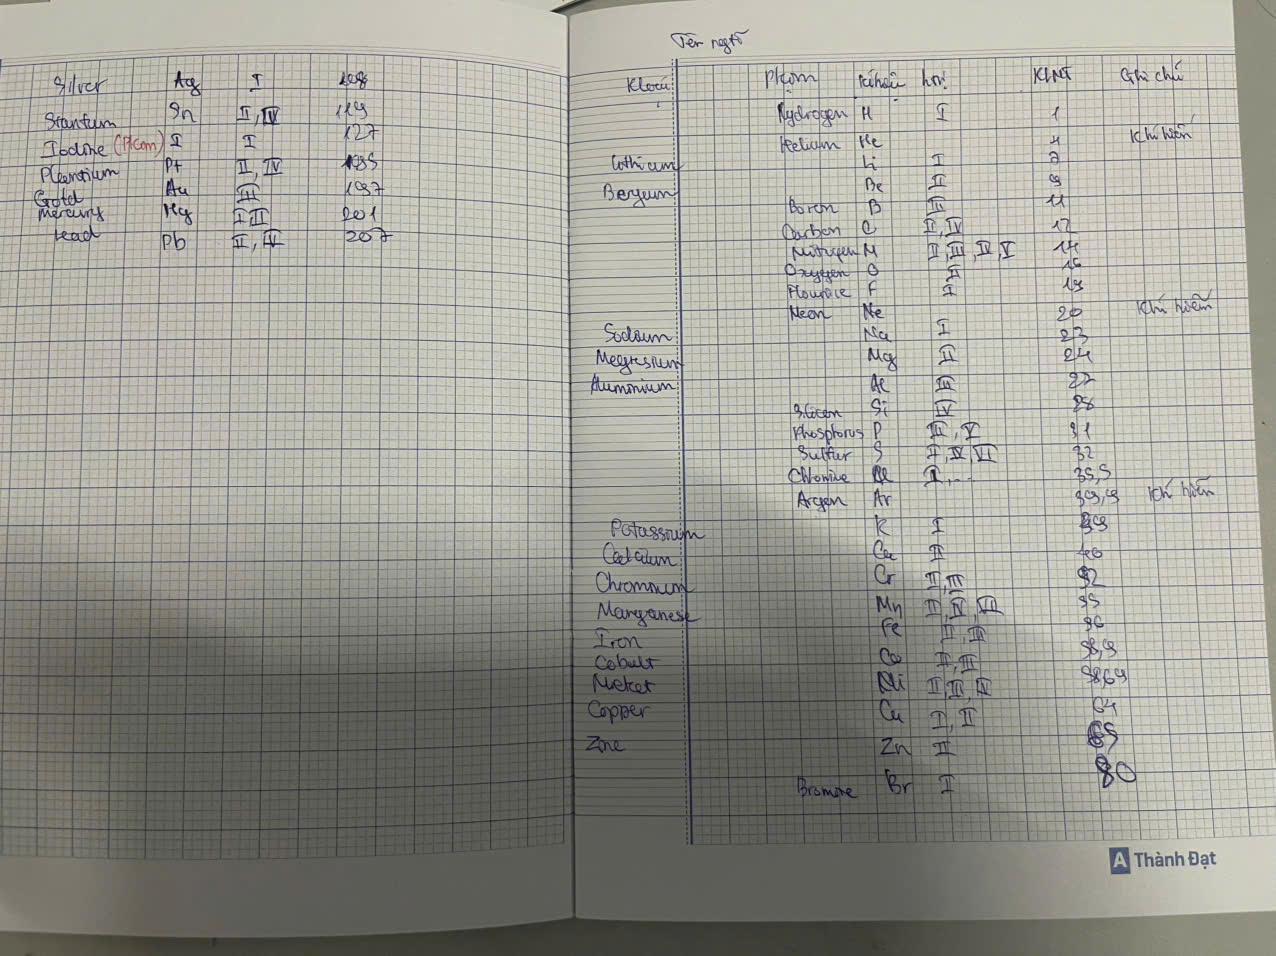 Silver Ag I 108
Stantum Sn II, IV 119
Iodine (Pkom) I I 127
Pleantium Pt II, IV 195
Gold Au III 197
Mercury Hg I II 201
Lead Pb II, IV 207
Tên ngtố
Kloại Pkom Kí hiệu htrị KLNT Ghi chú
Hydrogen H I 1
Helium He 4 Khí hiếm
Lithium Li I 7
Beryum Be II 9
Boron B III 11
Carbon C II, IV 12
Nitrogen N II, III, IV, V 14
Oxygen O II 16
Flourine F I 19
Neon Ne 20 Khí hiếm
Sodium Na I 23
Megnesium Mg II 24
Alumonium Al III 27
Silicon Si IV 28
Phosphorus P III, V 31
Sulfur S II, IV, VI 32
Chlorine Cl I,... 35,5
Argon Ar 39,9 Khí hiếm
Potassium K I 39
Calcium Ca II 40
Chromium Cr II, III 52
Manganese Mn II, IV, VII 55
Iron Fe II, III 56
Cobalt Co II, III 58,9
Nickel Ni II, III, IV 58,69
Copper Cu I, II 64
Zinc Zn II 65
Bromine Br I 80
A Thành Đạt